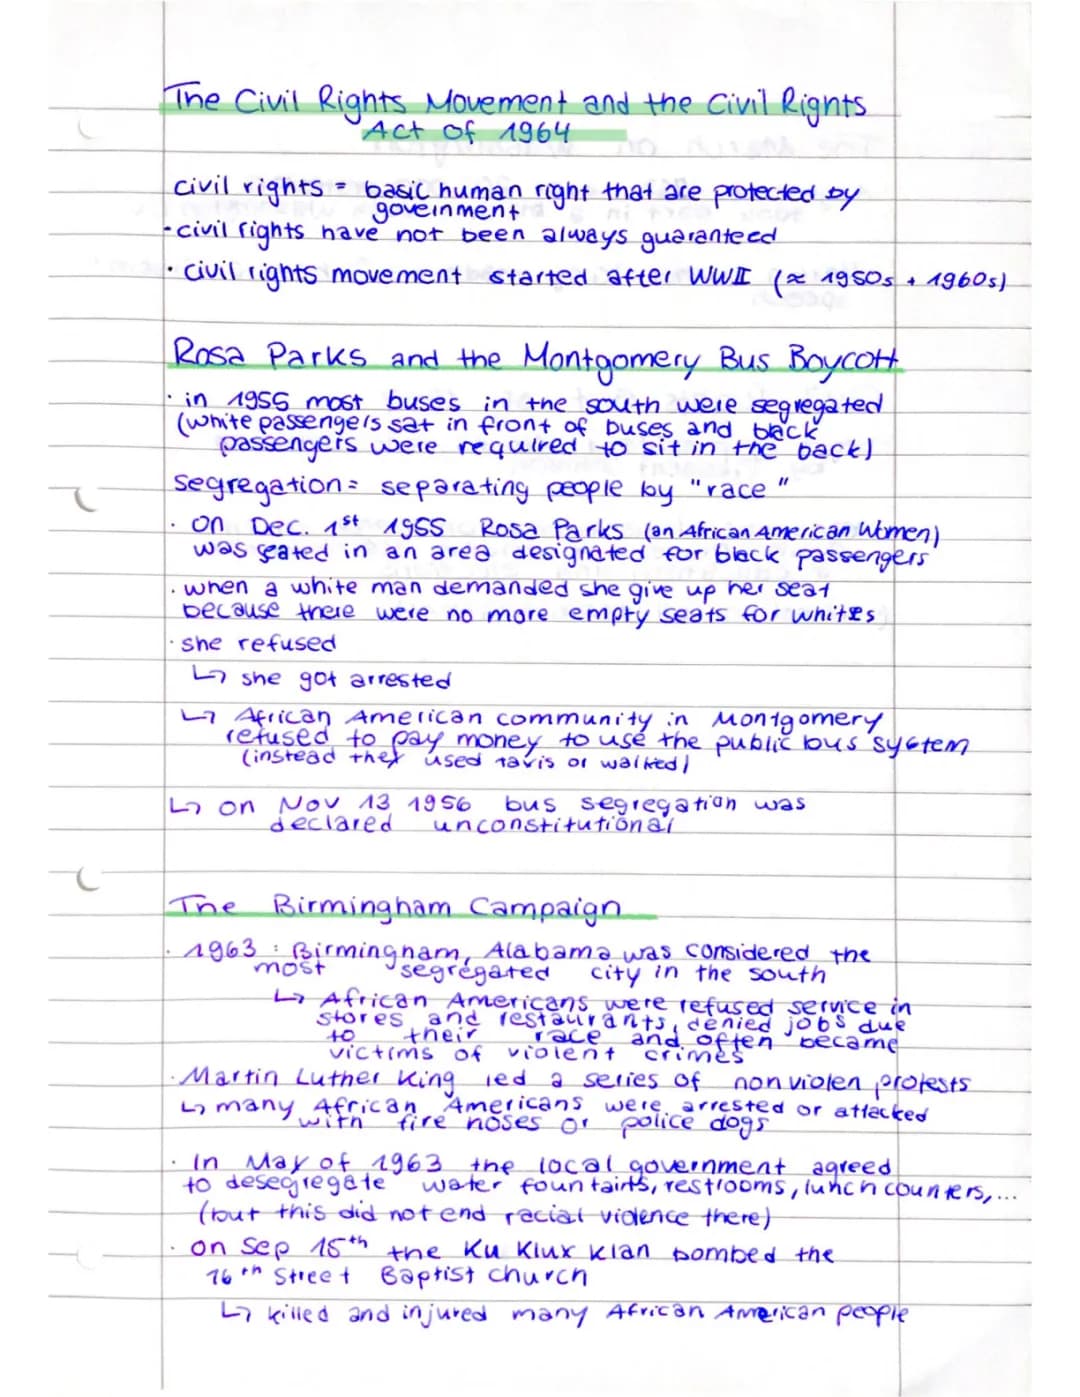 The Civil Rights Movement and the Civil Rights
Act of 1964
civil rights = basic human right that are protected by
government
- civil rights have not been always guaranteed
· civil rights movement started after WWII (≈ 1950s + 1960s)
Rosa Parks and the Montgomery Bus Boycott
· in 1955 most buses in the south were segregated
(white passengers sat in front of buses and black
passengers were required to sit in the back)
Segregation = separating people by "race"
· on Dec. 1st 1955 Rosa Parks (an African American Women)
was seated in an area designated for black passengers
· when a white man demanded she give up her seat
because there were no more empty seats for whites
· she refused
↳ she got arrested
↳ African American community in Montgomery
refused to pay money to use the public bus system
(instead they used taxis or walked)
↳ on Nov 13 1956 bus segregation was
declared unconstitutional
The Birmingham Campaign
· 1963 : Birmingham, Alabama was considered the
most segregated city in the south
↳ African Americans were refused service in
stores and restaurants, denied jobs due
to their race and often became
victims of violent crimes
· Martin Luther King led a series of nonviolen protests
↳ many African Americans were arrested or attacked
with fire hoses or police dogs
· In May of 1963 the local government agreed
to desegregate water fountains, restrooms, lunch counters,...
(but this did not end racial violence there)
· on Sep 15th the Ku Klux Klan bombed the
16th Street Baptist church
↳ killed and injured many African American people